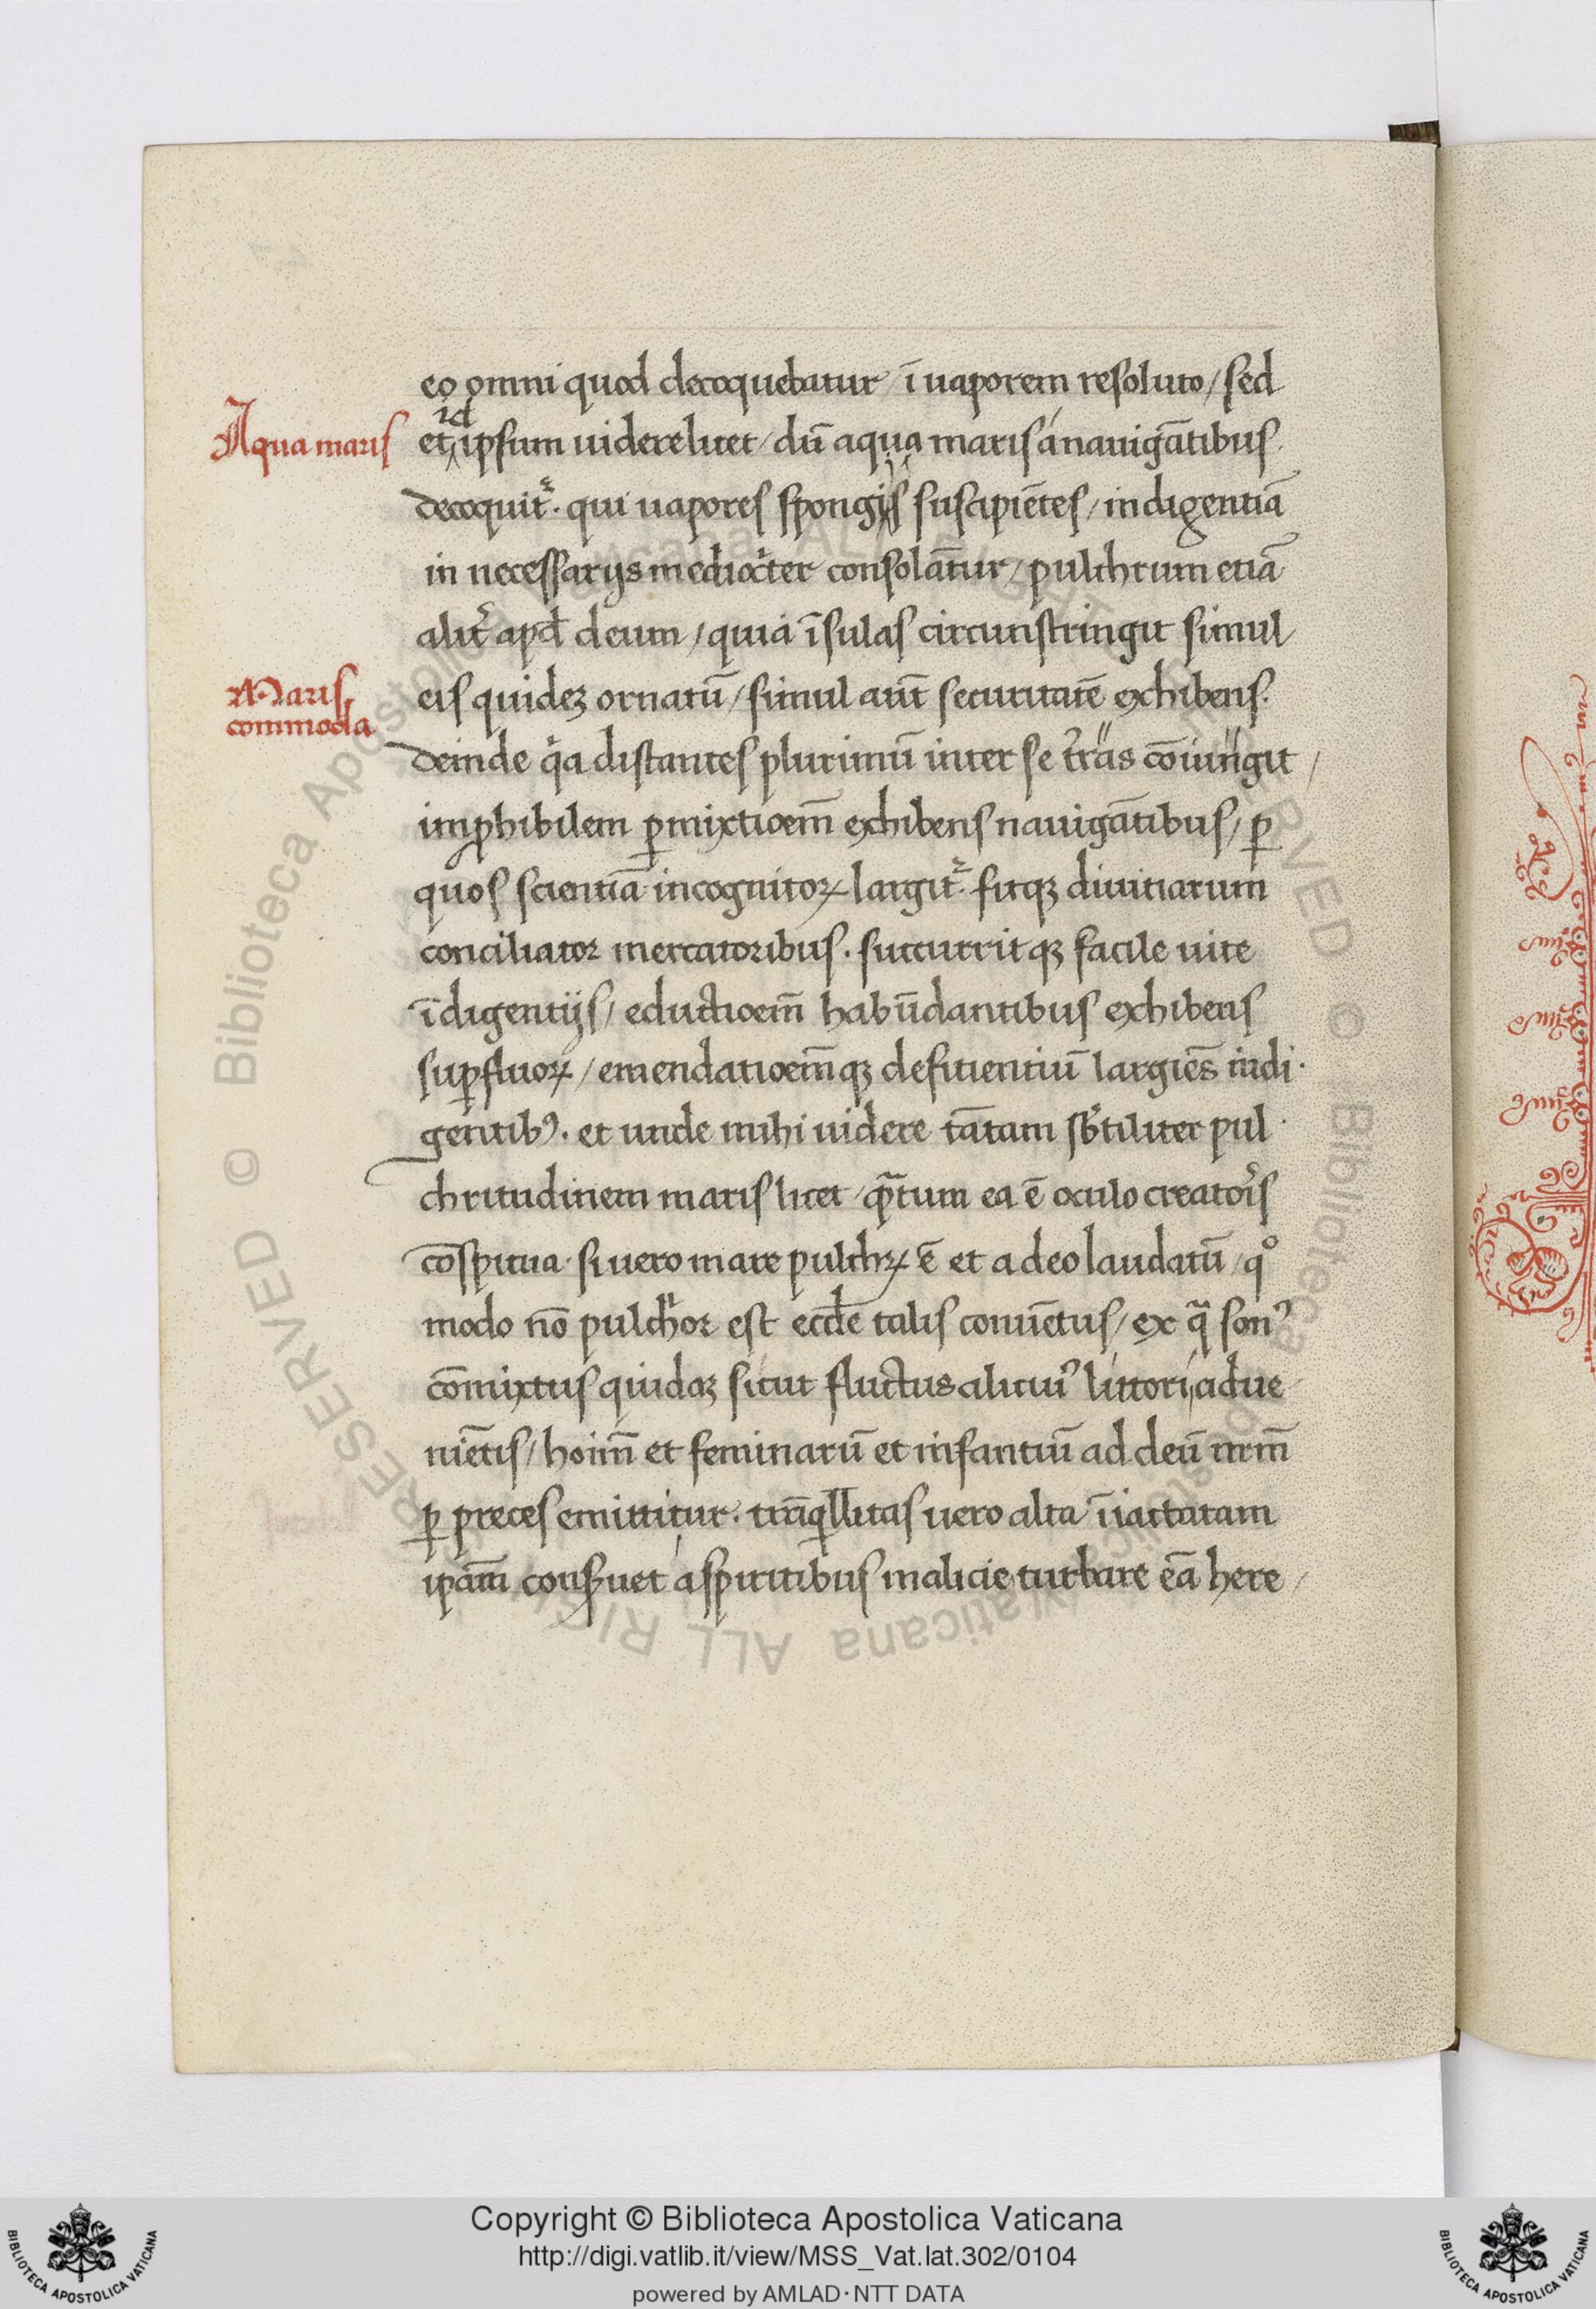 eo omni quod decoquebatur / ī uaporem resoluto / sed
Aqua maris
id
et ipsum uidere licet / dū aqua maris á nauigātibus
decoquit᷑. qui uapores spongijs suscipiētes / indigentiā
in necessarijs mediocͥter consolātur / pulchrum etiā
alit᷑ apd̄ deum / quia īsulas circunstringit simul
Maris
commoda
eis quidez ornatū / simul aūt securitatē exhibens.
deinde qͥa distantes plurimū inter se t᷑ras cōiungit /
imꝓhibilem ꝑmixtioem̄ exhibens nauigātibus / ꝑ
quos scientiā incognitoꝝ largit᷑. fitqꝫ diuitiarum
conciliator mercatoribus. succurritqꝫ facile uite
īdigentijs / eductioem̄ habūdantibus exhibens
suꝑfluoꝝ / emendatioem̄qꝫ defitientiū largiēs indi
gentibꝰ. et unde mihi uidere tātam sb̓tiliter pul
chritudinem maris licet / qͣ̄tum ea ē oculo creatoris
cōspicua. si uero mare pulchꝝ ē et a deo laudatū / qͦ
modo nō pulchͥor est eccl̄e talis conuētus / ex qͣ sonꝰ
cōmixtus quidaꝫ sicut fluctus alicuiꝰ littori adue
niētis / hoim̄ et feminarū et infantiū ad deū nrm̄
ꝑ preces emittitur. trāqͥllitas uero alta īiactatam
ipam̄ conseruet á spiritibus malicie turbare eā here
Copyright © Biblioteca Apostolica Vaticana
http://digi.vatlib.it/view/MSS_Vat.lat.302/0104
powered by AMLAD · NTT DATA